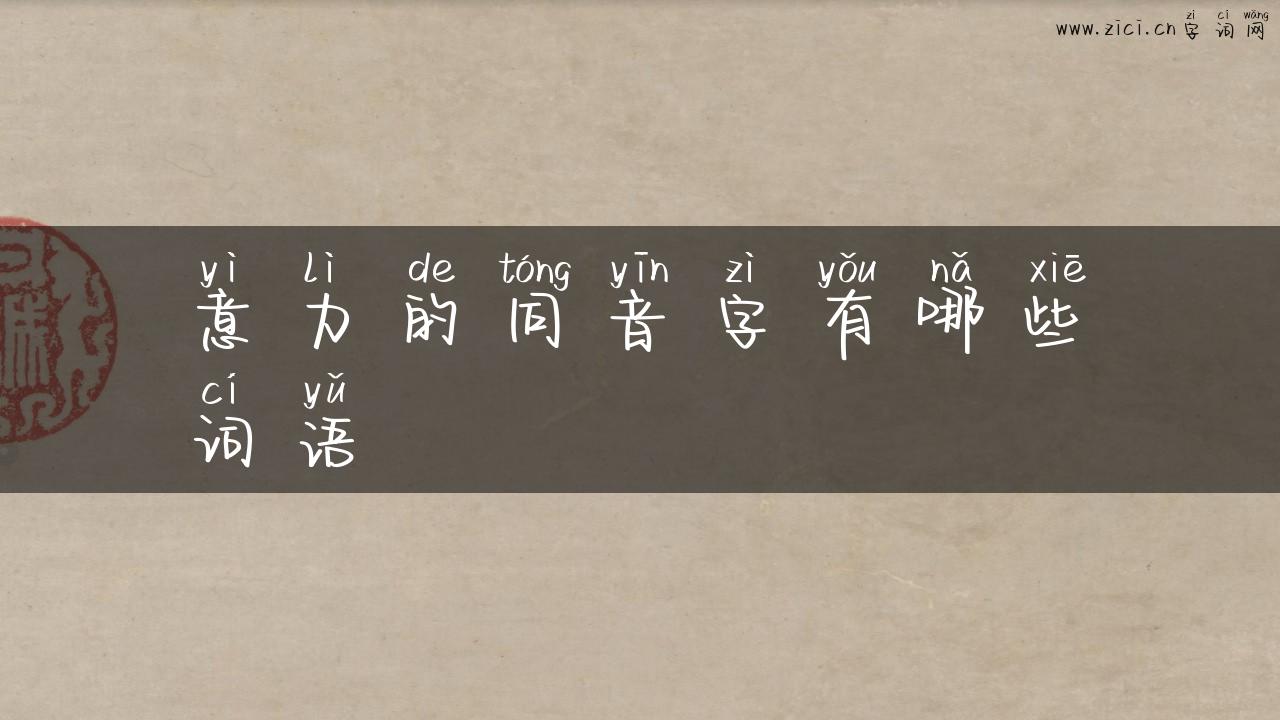 zì cí wǎng
www.zici.cn 字词网
yì lì de tóng yīn zì yǒu nǎ xiē
意力的同音字有哪些
cí yǔ
词语